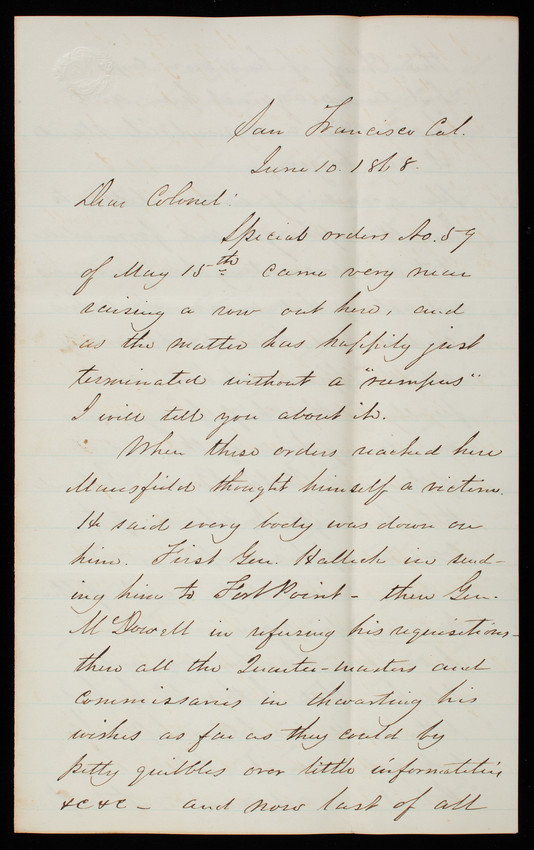 San Francisco Cal.
June 10. 1868.
Dear Colonel:
Special orders No. 59
of May 15th came very near
raising a row out here, and
as the matter has happily just
terminated without a "rumpus"
I will tell you about it.
When these orders reached here
Mansfield thought himself a victim.
He said every body was down on
him. First Gen. Halleck in send-
ing him to Fort Point - then Gen.
McDowell in refusing his requisitions -
then all the Quarter-masters and
Commissaries in thwarting his
wishes as far as they could by
petty quibbles over little informalities
&c &c - and now last of all